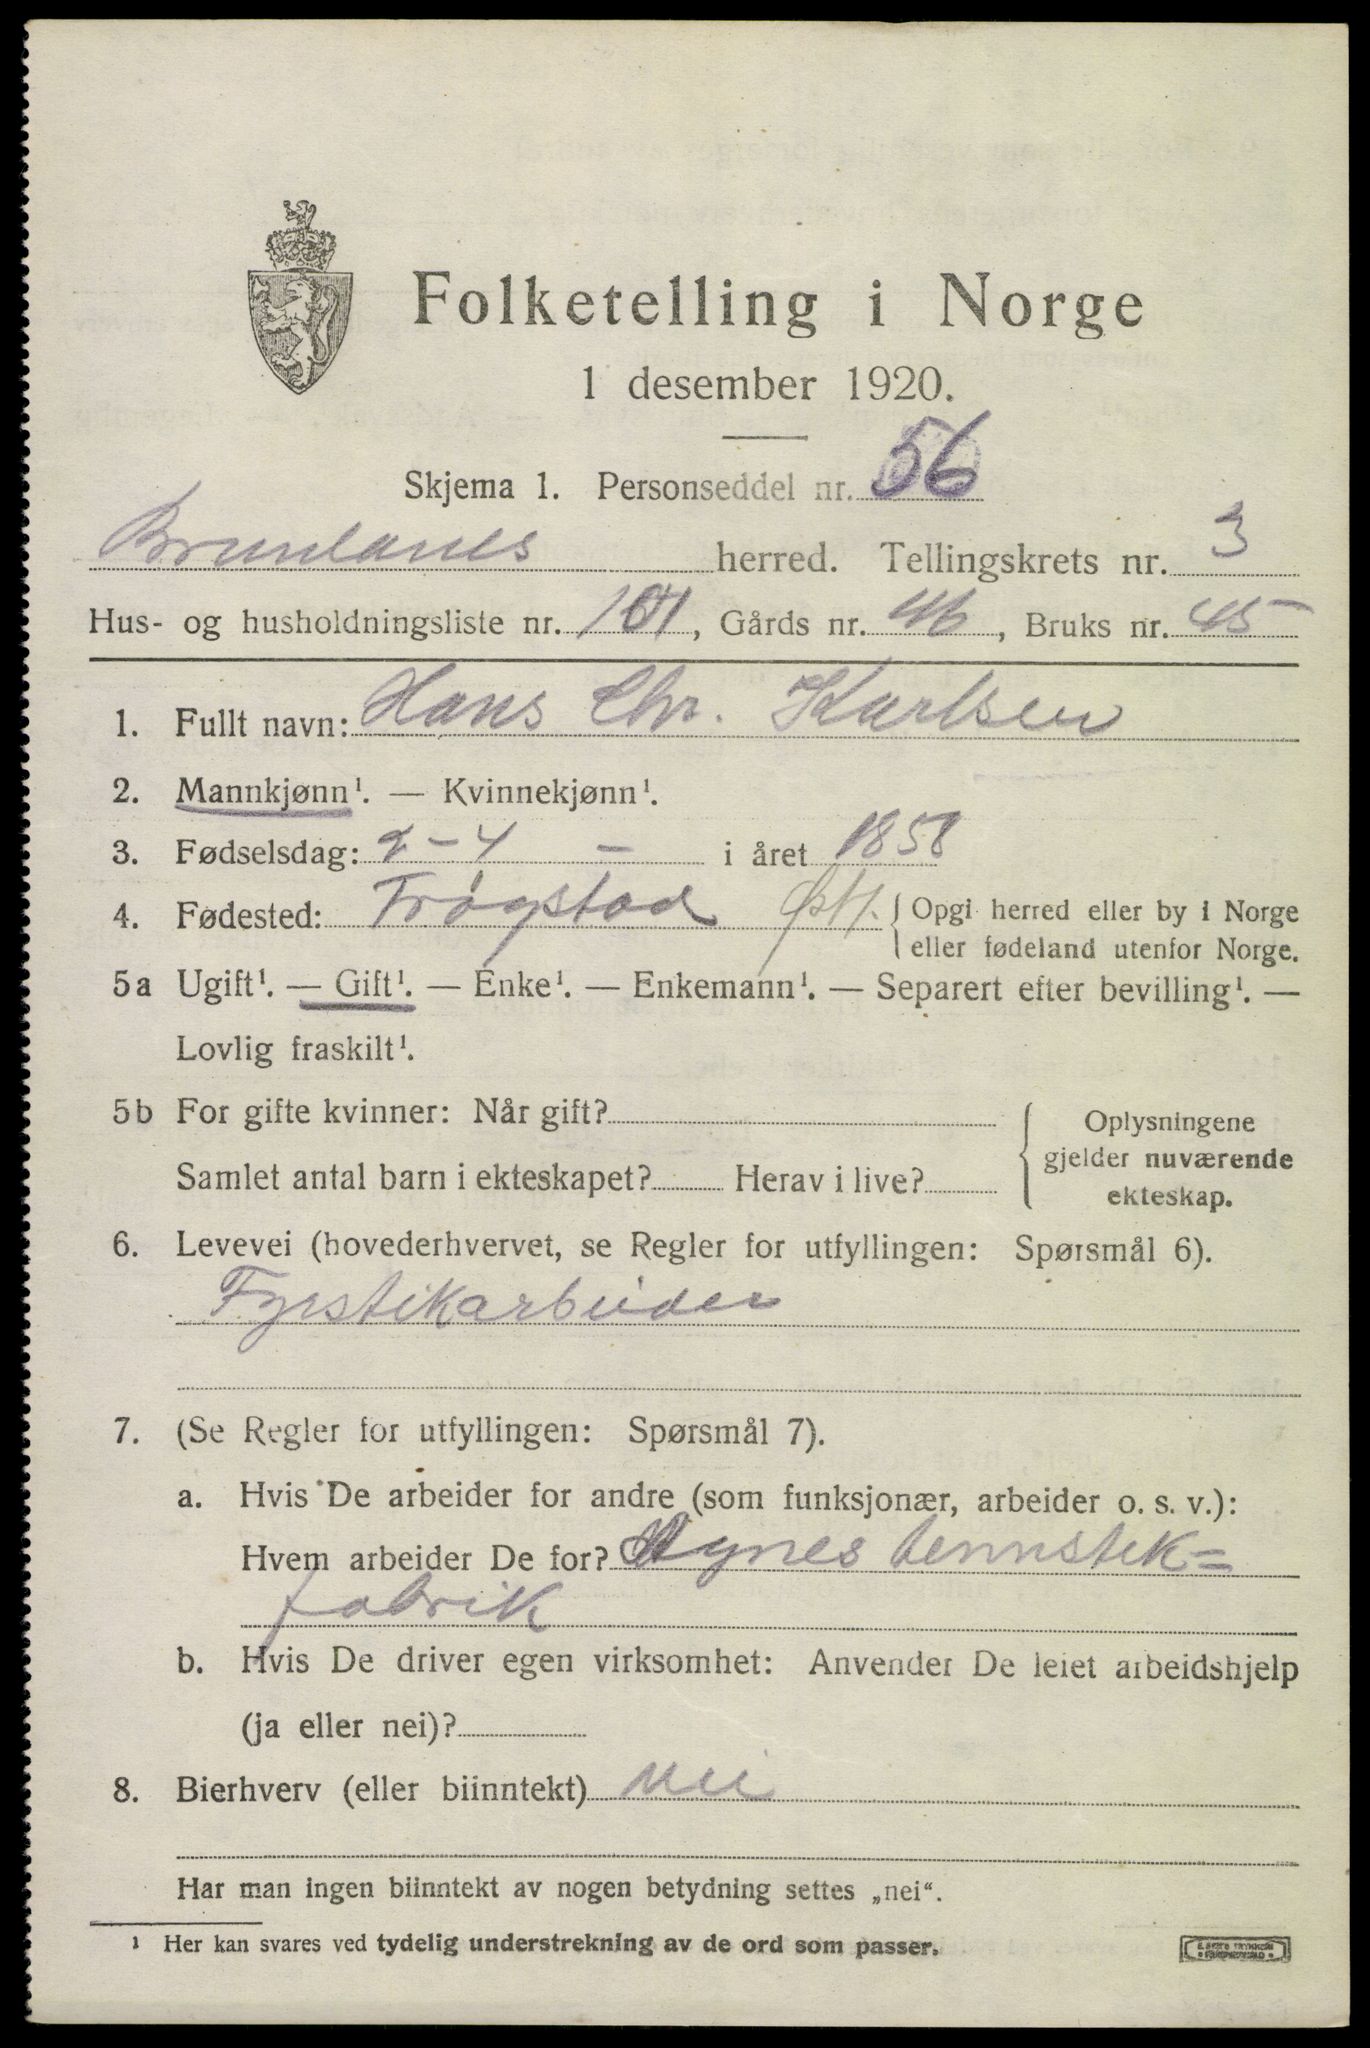 Folketelling i Norge
1 desember 1920.
Skjema 1. Personseddel nr. 56
Brunlanes herred. Tellingskrets nr. 3
Hus- og husholdningsliste nr. 101, Gårds nr. 46, Bruks nr. 45
1. Fullt navn: Hans Chr. Karlsen
2. Mannkjønn¹. — Kvinnekjønn¹.
3. Fødselsdag: 2-4 – i året 1858
4. Fødested: Trøgstad Østf. { Opgi herred eller by i Norge
eller fødeland utenfor Norge.
5a Ugift¹. — Gift¹. — Enke¹. — Enkemann¹. — Separert efter bevilling¹. —
Lovlig fraskilt¹.
5b For gifte kvinner: Når gift? { Oplysningene
gjelder nuværende
Samlet antal barn i ekteskapet? Herav i live?
ekteskap.
6. Levevei (hovederhvervet, se Regler for utfyllingen: Spørsmål 6).
Fyrstikarbeider
7. (Se Regler for utfyllingen: Spørsmål 7).
a. Hvis De arbeider for andre (som funksjonær, arbeider o. s. v.):
Hvem arbeider De for? Agnes tennstik=
fabrik
b. Hvis De driver egen virksomhet: Anvender De leiet arbeidshjelp
(ja eller nei)?
8. Bierhverv (eller biinntekt) nei
Har man ingen biinntekt av nogen betydning settes „nei“.
¹ Her kan svares ved tydelig understrekning av de ord som passer.